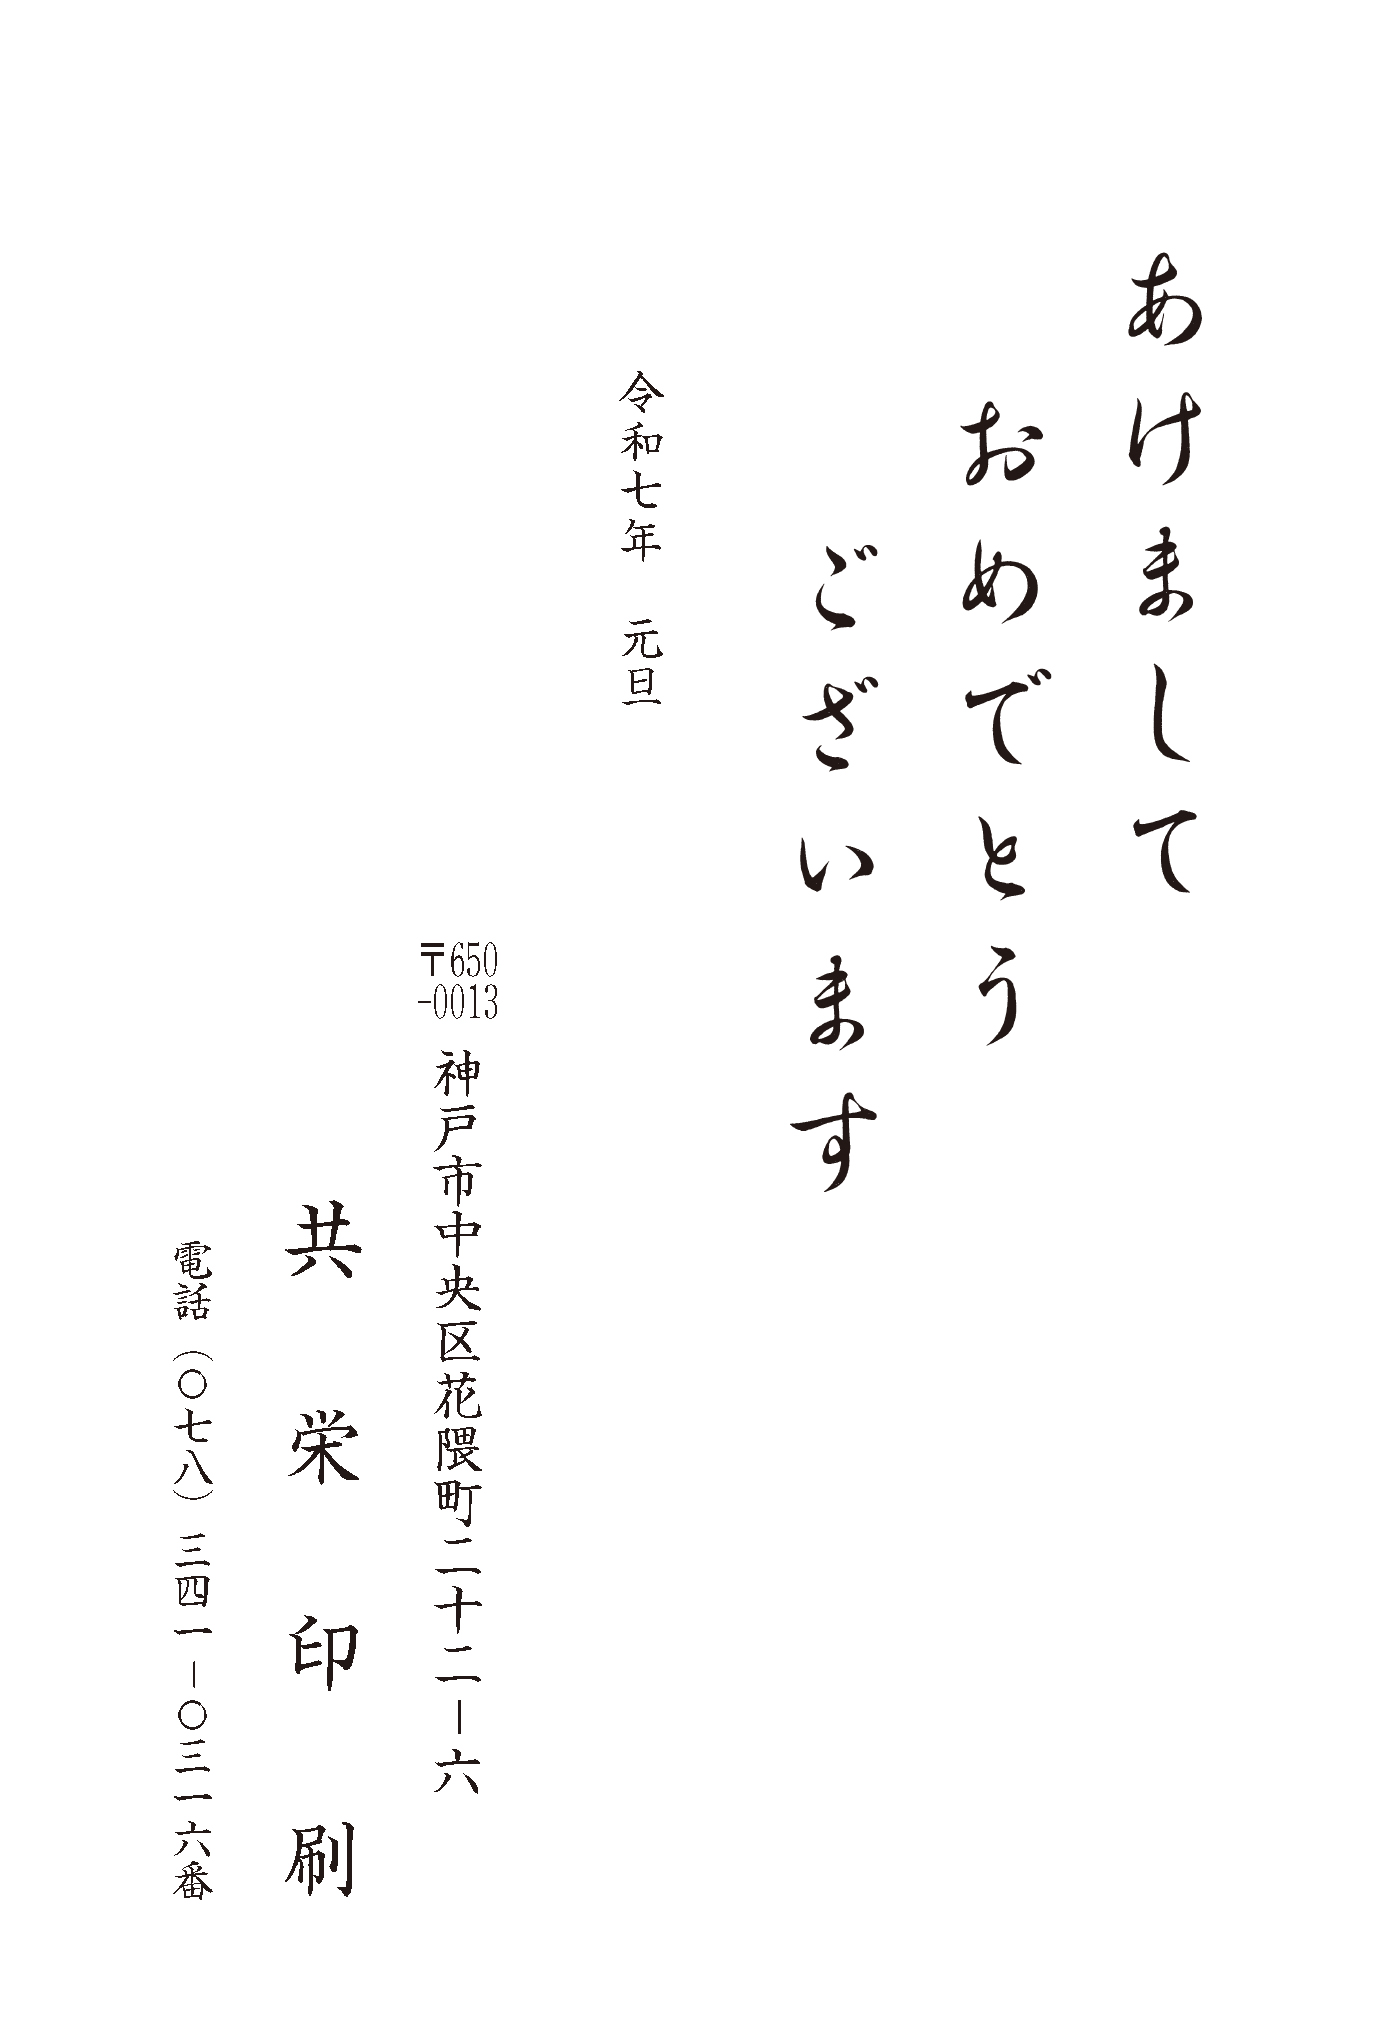 あけまして
おめでとう
ございます
令和七年　元旦
〒650
-0013
神戸市中央区花隈町二十二－六
共栄印刷
電話（〇七八）三四一－〇三一六番